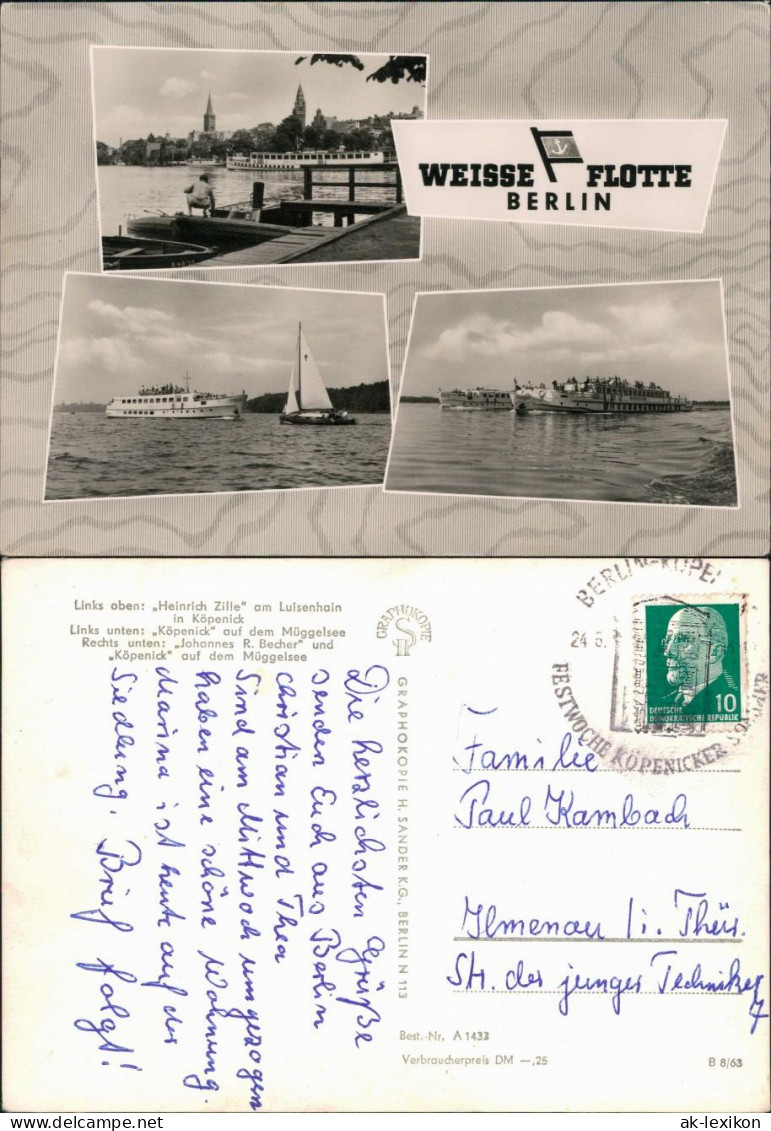 WEISSE FLOTTE
BERLIN
Links oben: „Heinrich Zille" am Luisenhain
in Köpenick
Links unten: „Köpenick" auf dem Müggelsee
Rechts unten: „Johannes R. Becher" und
„Köpenick" auf dem Müggelsee
GRAPHOKOPIE
GRAPHOKOPIE H. SANDER K.G., BERLIN N 113
Die herzlichsten Grüße
senden Euch aus Berlin
Christian und Thea
Sind am Mittwoch umgezogen
haben eine schöne Wohnung.
Marina ist heute auf der
Siedlung. Brief folgt!
BERLIN-KÖPE
24 6.
FESTWOCHE KÖPENICKER SOMMER
10
DEUTSCHE
DEMOKRATISCHE REPUBLIK
Familie
Paul Kambach
Ilmenau i. Thür.
Str. der jungen Techniker
7
Best.-Nr. A 1433
Verbraucherpreis DM —,25
B 8/63
ak-lexikon
ak-lexikon.com